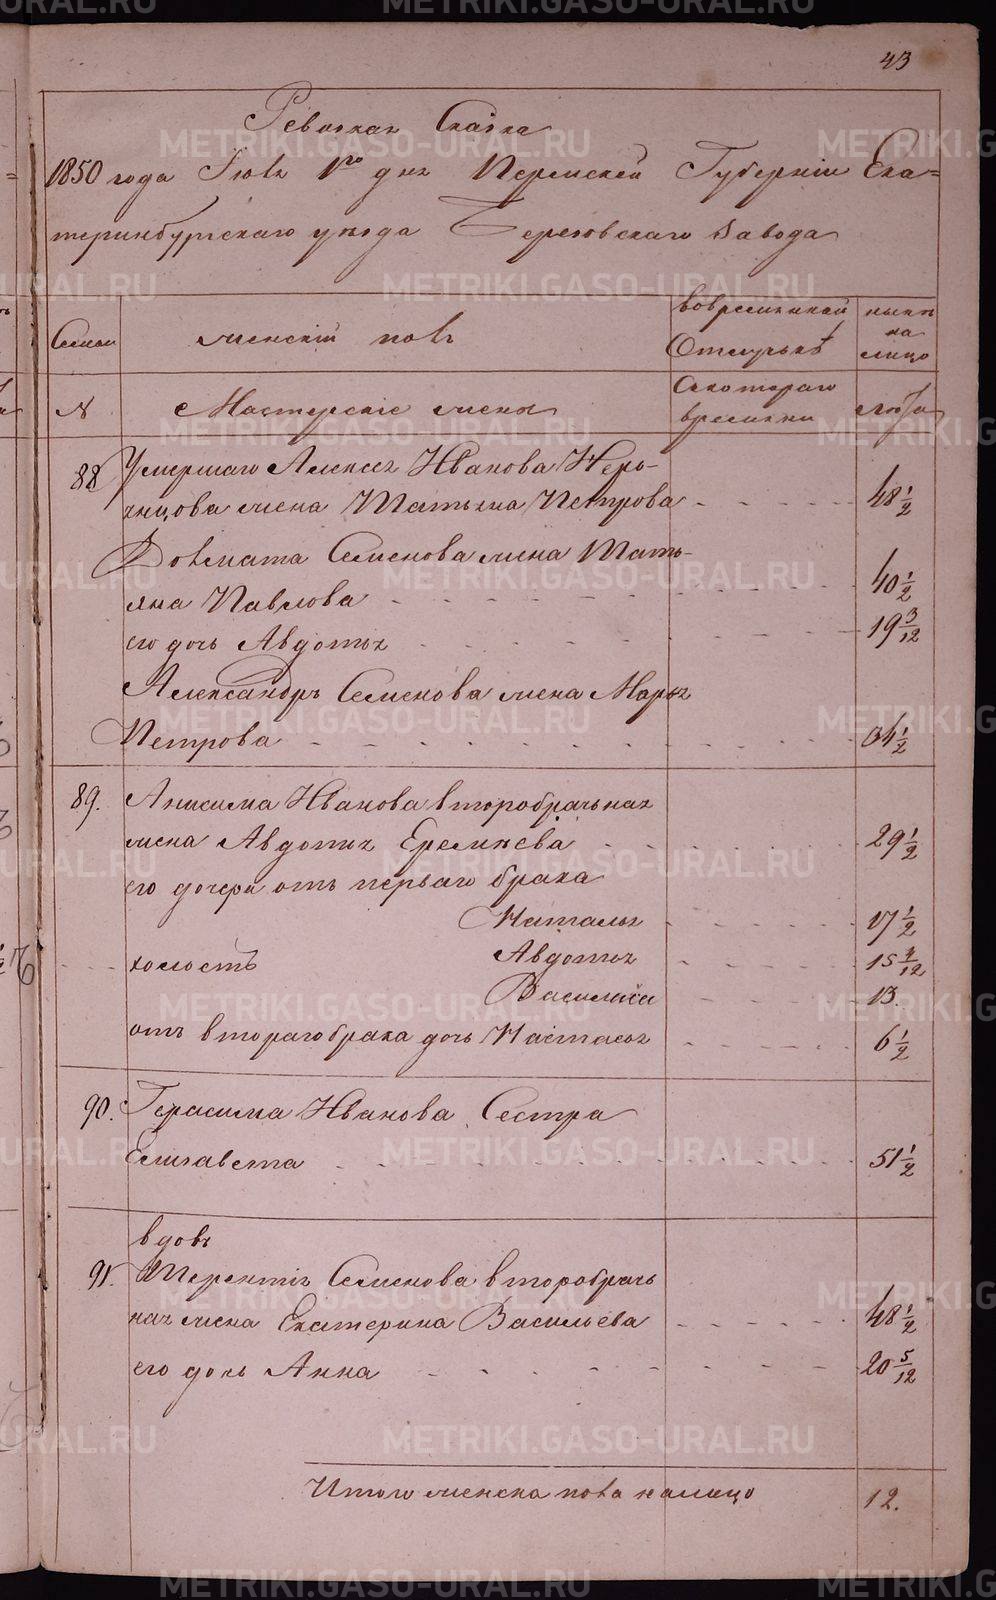 43
Ревизкая Сказка
1850 года Іюля 1го дня Пермской Губерніи Ека=
теринбургскаго уѣзда Березовскаго Завода
Семьи
женскій полъ
во временной
Отлучкѣ
нынѣ
на
лицо
N
Мастерскіе жены
Скотораго
времяни
лѣта
88
Умершаго Алексея Иванова
жена Татьяна Петрова
48 1/2
Довмата Семенова жена Тать-
яна Павлова
40 1/2
его дочь Авдотья
19 3/12
Александръ Семенова жена Марья
Петрова
34 1/2
89.
Анисима Иванова второбрачьная
жена Авдотья Еремѣева
29 1/2
его дочери отъ перваго брака
Наталья
17 1/2
холостъ
Авдотья
15
Василиса
13.
отъ втораго брака дочь Настасья
6 1/2
90.
Герасима Иванова Сестра
Елизавета
51 1/2
вдовъ
91.
Терентія Семенова второбрачь
ная жена Екатерина Васильева
48 1/2
его дочь Анна
20 5/12
Итого женска пола налицо
12.
METRIKI.GASO-URAL.RU